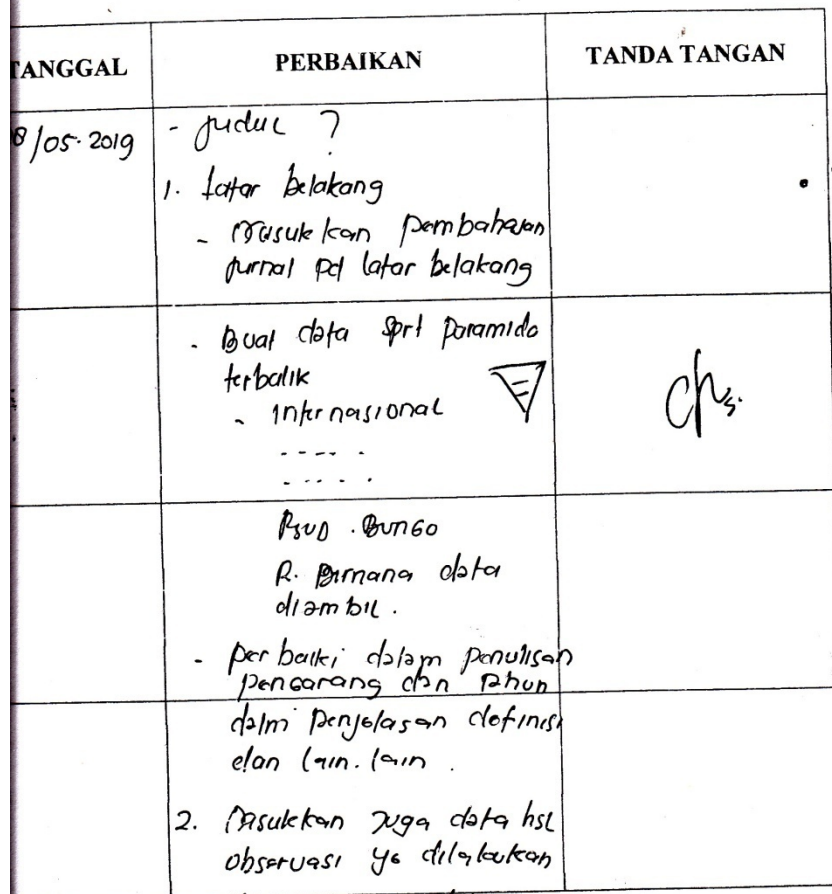 TANGGAL PERBAIKAN TANDA TANGAN
8/05.2019 - Judul ?
1. Latar belakang
- Masukkan pembahasan
jurnal pd latar belakang
- Buat data sprt paramida
terbalik
- Internasional
- - - - -
- - - - -
RSUD . BUNGO
R. data
diambil .
- perbaiki dalam penulisan
pengarang dan tahun
dalm penjelasan definisi
dan lain.lain .
2. Masukkan juga data hsl
observasi yg dilakukan